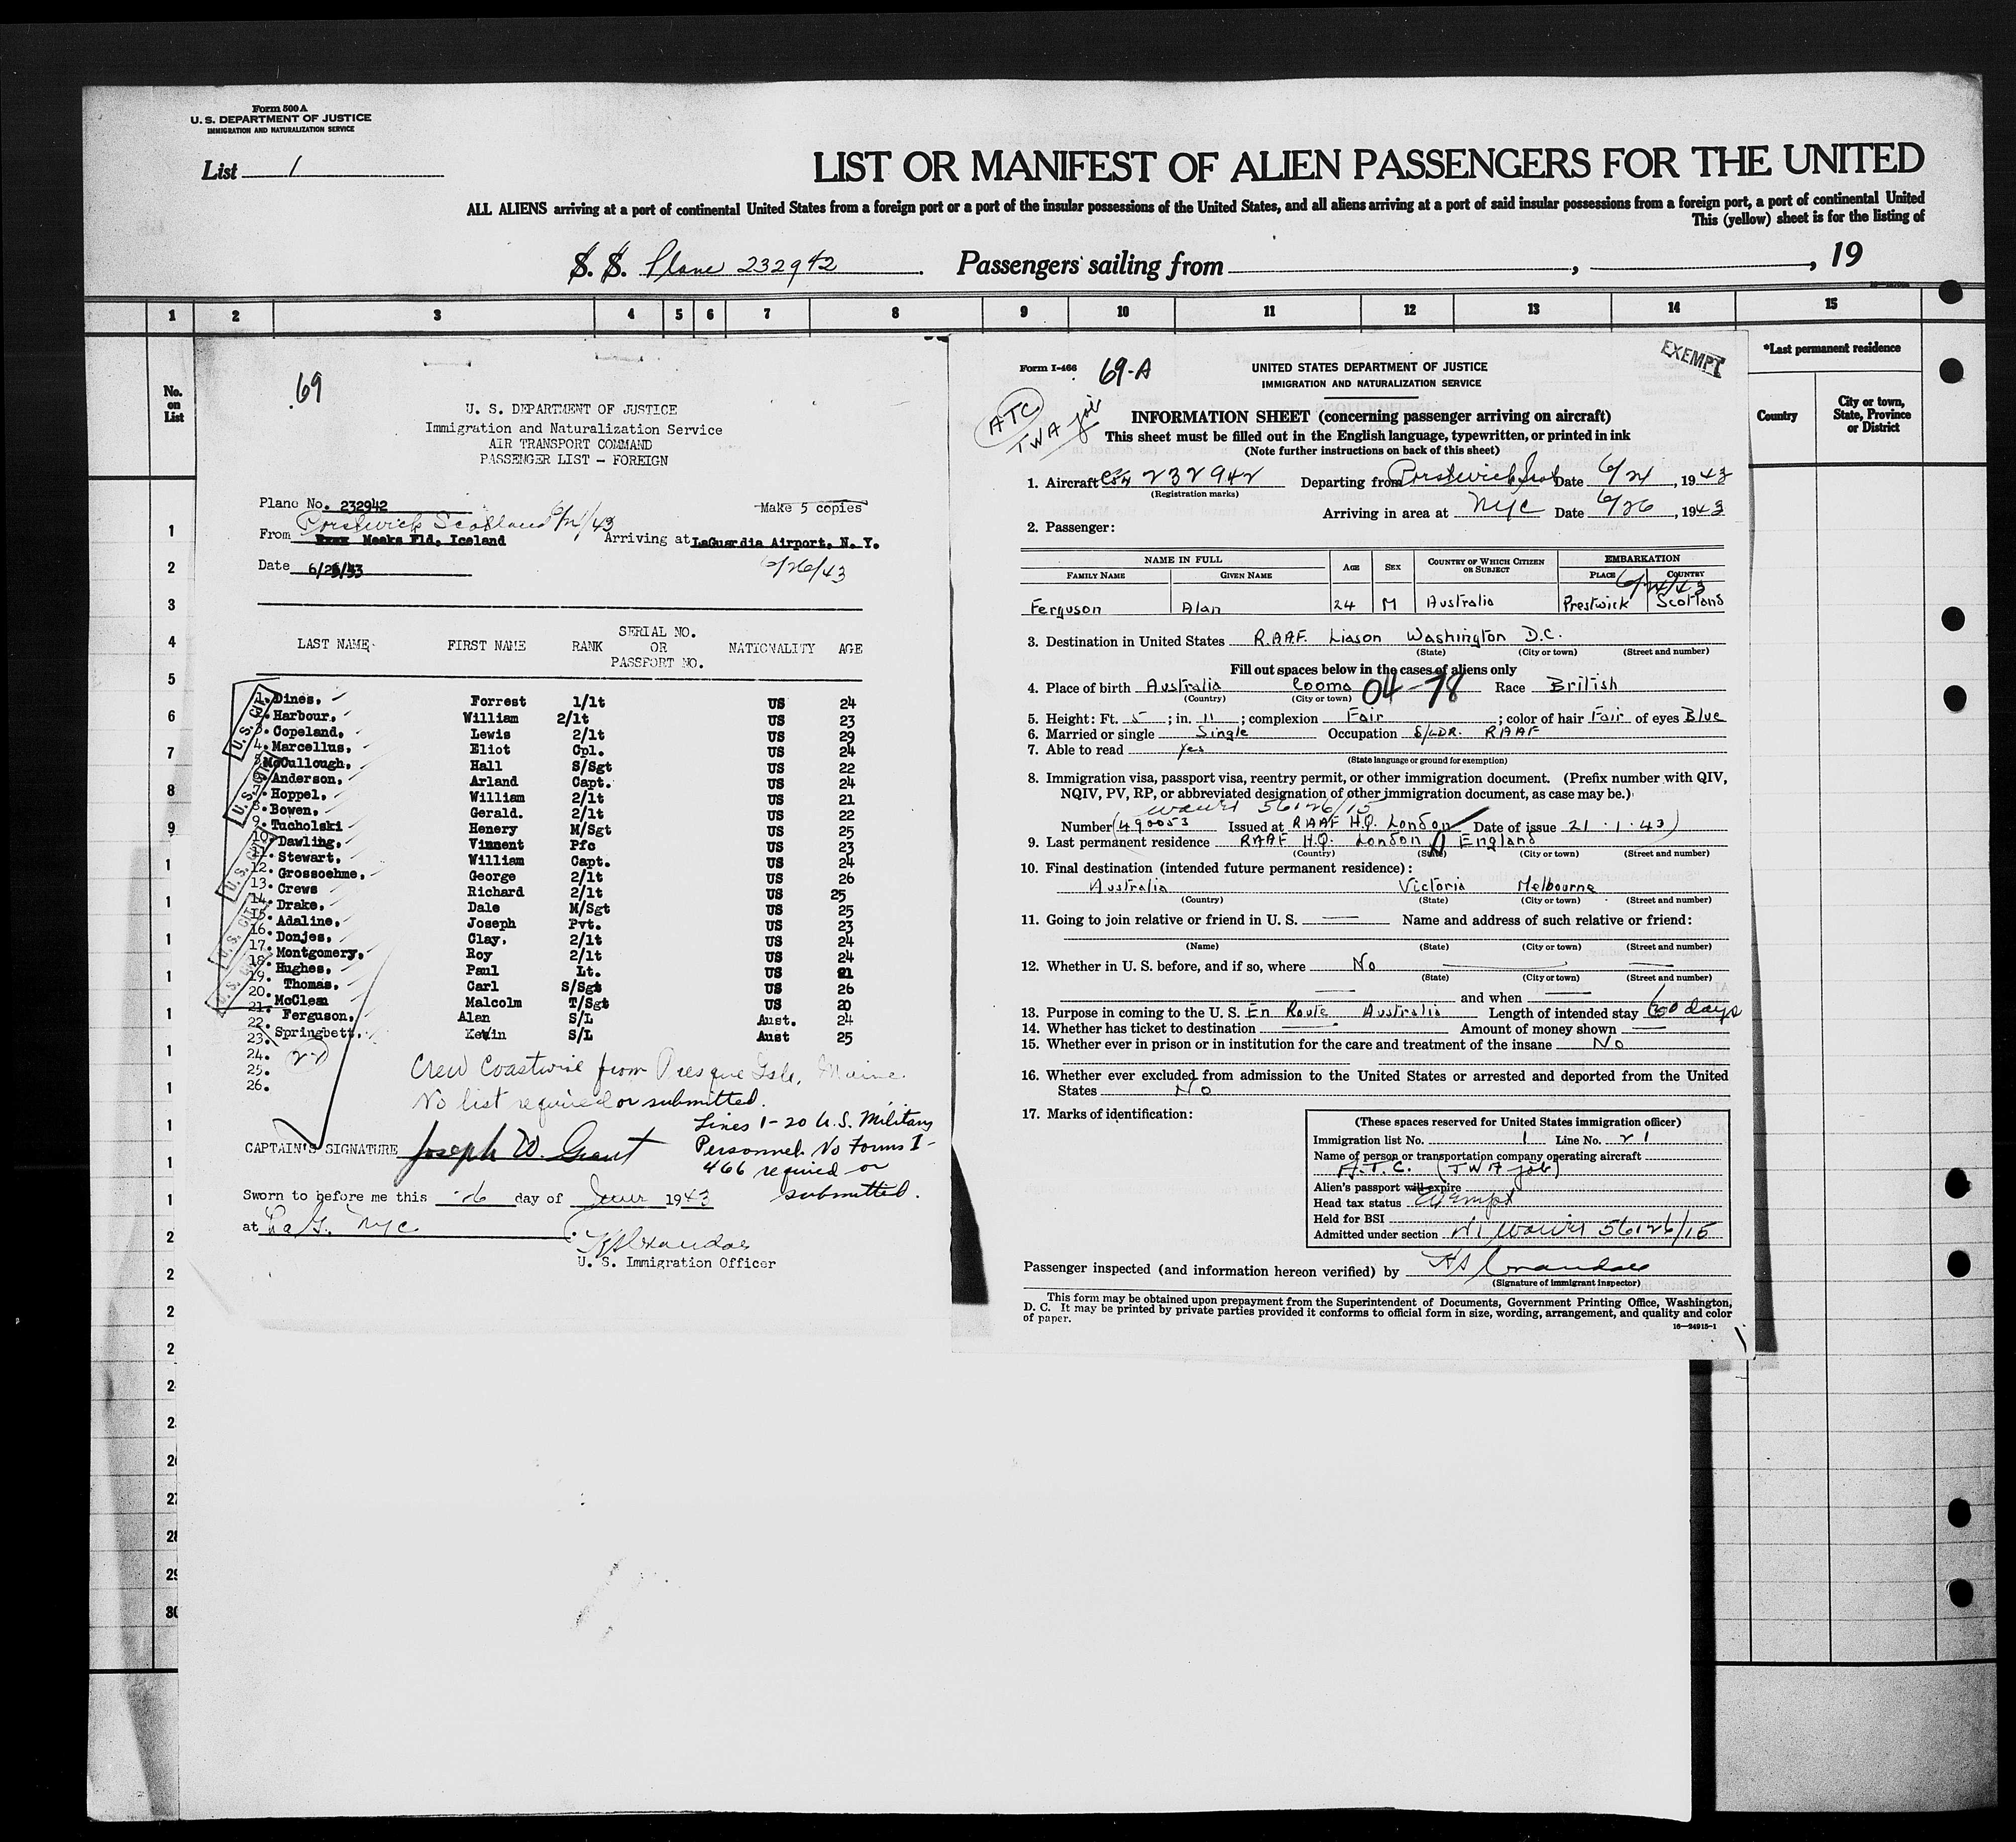 Form 500 A
U. S. DEPARTMENT OF JUSTICE
IMMIGRATION AND NATURALIZATION SERVICE
List 1
LIST OR MANIFEST OF ALIEN PASSENGERS FOR THE UNITED
ALL ALIENS arriving at a port of continental United States from a foreign port or a port of the insular possessions of the United States, and all aliens arriving at a port of said insular possessions from a foreign port, a port of continental United
This (yellow) sheet is for the listing of
S. S. Plane 232942 Passengers sailing from , , 19
1 2 3 4 5 6 7 8 9 10 11 12 13 14 15
No. on List
*Last permanent residence
Country
City or town, State, Province or District
1
2
3
4
5
6
7
8
9
1
1
1
1
1
1
1
1
1
1
2
2
2
2
2
2
26
27
28
29
30
69
U. S. DEPARTMENT OF JUSTICE
Immigration and Naturalization Service
AIR TRANSPORT COMMAND
PASSENGER LIST - FOREIGN
Plane No. 232942
Make 5 copies
Prestwick Scotland 6/24/43
From Meeks Fld, Iceland Arriving at LaGuardia Airport, N. Y.
Date 6/25/43 6/26/43
LAST NAME FIRST NAME RANK SERIAL NO. OR PASSPORT NO. NATIONALITY AGE
1. Dines. Forrest 1/lt US 24
2. Harbour. William 2/lt US 23
3. Copeland. Lewis 2/lt US 29
4. Marcellus. Eliot Cpl. US 24
5. McCullough. Hall S/Sgt US 22
6. Anderson. Arland Capt. US 24
7. Hoppel. William 2/lt US 21
8. Bowen. Gerald. 2/lt US 22
9. Tucholski Henery M/Sgt US 25
10. Dawling. Vinnent Pfc US 23
11. Stewart. William Capt. US 24
12. Grossoehme. George 2/lt US 26
13. Crews Richard 2/lt US 25
14. Drake. Dale M/Sgt US 25
15. Adaline. Joseph Pvt. US 23
16. Donjes. Clay. 2/lt US 24
17. Montgomery. Roy 2/lt US 24
18. Hughes. Paul Lt. US 21
19. Thomas. Carl S/Sgt US 26
20. McClean Malcolm T/Sgt US 20
21. Ferguson. Alan S/L Aust. 24
22. Springbett. Kevin S/L Aust 25
23.
24.
25.
26.
22
U. S. CIT
U. S. CIT
U. S. CIT
U. S. CIT
U. S. CIT
Crew Coastwise from Presque Isle, Maine.
No list required or submitted.
Lines 1-20 U.S. Military
Personnel. No Forms I-
466 required or
submitted.
CAPTAIN'S SIGNATURE Joseph W. Grant
Sworn to before me this 26 day of June 1943
at La G. NYC
U. S. Immigration Officer
Form I-466
69-A
ATC
TWA job
EXEMPT
UNITED STATES DEPARTMENT OF JUSTICE
IMMIGRATION AND NATURALIZATION SERVICE
INFORMATION SHEET (concerning passenger arriving on aircraft)
This sheet must be filled out in the English language, typewritten, or printed in ink
(Note further instructions on back of this sheet)
1. Aircraft C54 232942 Departing from Prestwick Scot Date 6/24, 1943
(Registration marks)
Arriving in area at NYC Date 6/26, 1943
2. Passenger:
NAME IN FULL
FAMILY NAME GIVEN NAME AGE SEX COUNTRY OF WHICH CITIZEN OR SUBJECT EMBARKATION PLACE COUNTRY
6/24/43
Ferguson Alan 24 M Australia Prestwick Scotland
3. Destination in United States R.A.A.F. Liason Washington D.C.
(State) (City or town) (Street and number)
Fill out spaces below in the cases of aliens only
4. Place of birth Australia Cooma 04-78 Race British
(Country) (City or town)
5. Height: Ft. 5; in. 11; complexion Fair; color of hair Fair of eyes Blue
6. Married or single Single Occupation S/LDR. RAAF
7. Able to read Yes
(State language or ground for exemption)
8. Immigration visa, passport visa, reentry permit, or other immigration document. (Prefix number with QIV,
NQIV, PV, RP, or abbreviated designation of other immigration document, as case may be.)
waiver 56126/15
Number (490053 Issued at RAAF H.Q. London Date of issue 21.1.43)
9. Last permanent residence RAAF H.Q. London England
(Country) (State) (City or town) (Street and number)
10. Final destination (intended future permanent residence):
Australia Victoria Melbourne
(Country) (State) (City or town) (Street and number)
11. Going to join relative or friend in U. S. — Name and address of such relative or friend:
(Name) (State) (City or town) (Street and number)
12. Whether in U. S. before, and if so, where No
(State) (City or town) (Street and number)
and when
13. Purpose in coming to the U. S. En Route Australia Length of intended stay 60 days
14. Whether has ticket to destination — Amount of money shown —
15. Whether ever in prison or in institution for the care and treatment of the insane No
16. Whether ever excluded from admission to the United States or arrested and deported from the United
States No
17. Marks of identification:
(These spaces reserved for United States immigration officer)
Immigration list No. 1 Line No. 21
Name of person or transportation company operating aircraft
A.T.C. (TWA job)
Alien's passport will expire
Head tax status Exempt
Held for BSI
Admitted under section waiver 56126/15
Passenger inspected (and information hereon verified) by
(Signature of immigrant inspector)
This form may be obtained upon prepayment from the Superintendent of Documents, Government Printing Office, Washington,
D. C. It may be printed by private parties provided it conforms to official form in size, wording, arrangement, and quality and color
of paper.
16—24915-1